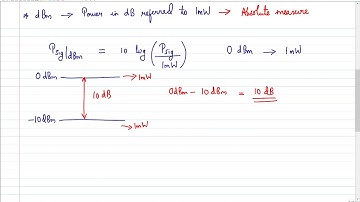 * dBm → Power in dB referred to 1mW → Absolute measure
Psig|dBm = 10 log (Psig/1mW) 0 dBm → 1mW
0 dBm → 1mW
10 dB 0dBm - 10 dBm = 10 dB
-10dBm → 1mW